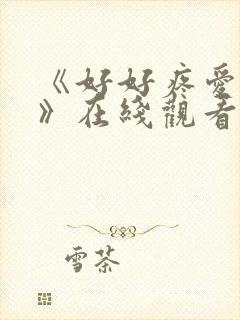 《好好疼爱
》在綫觀看
雪茶